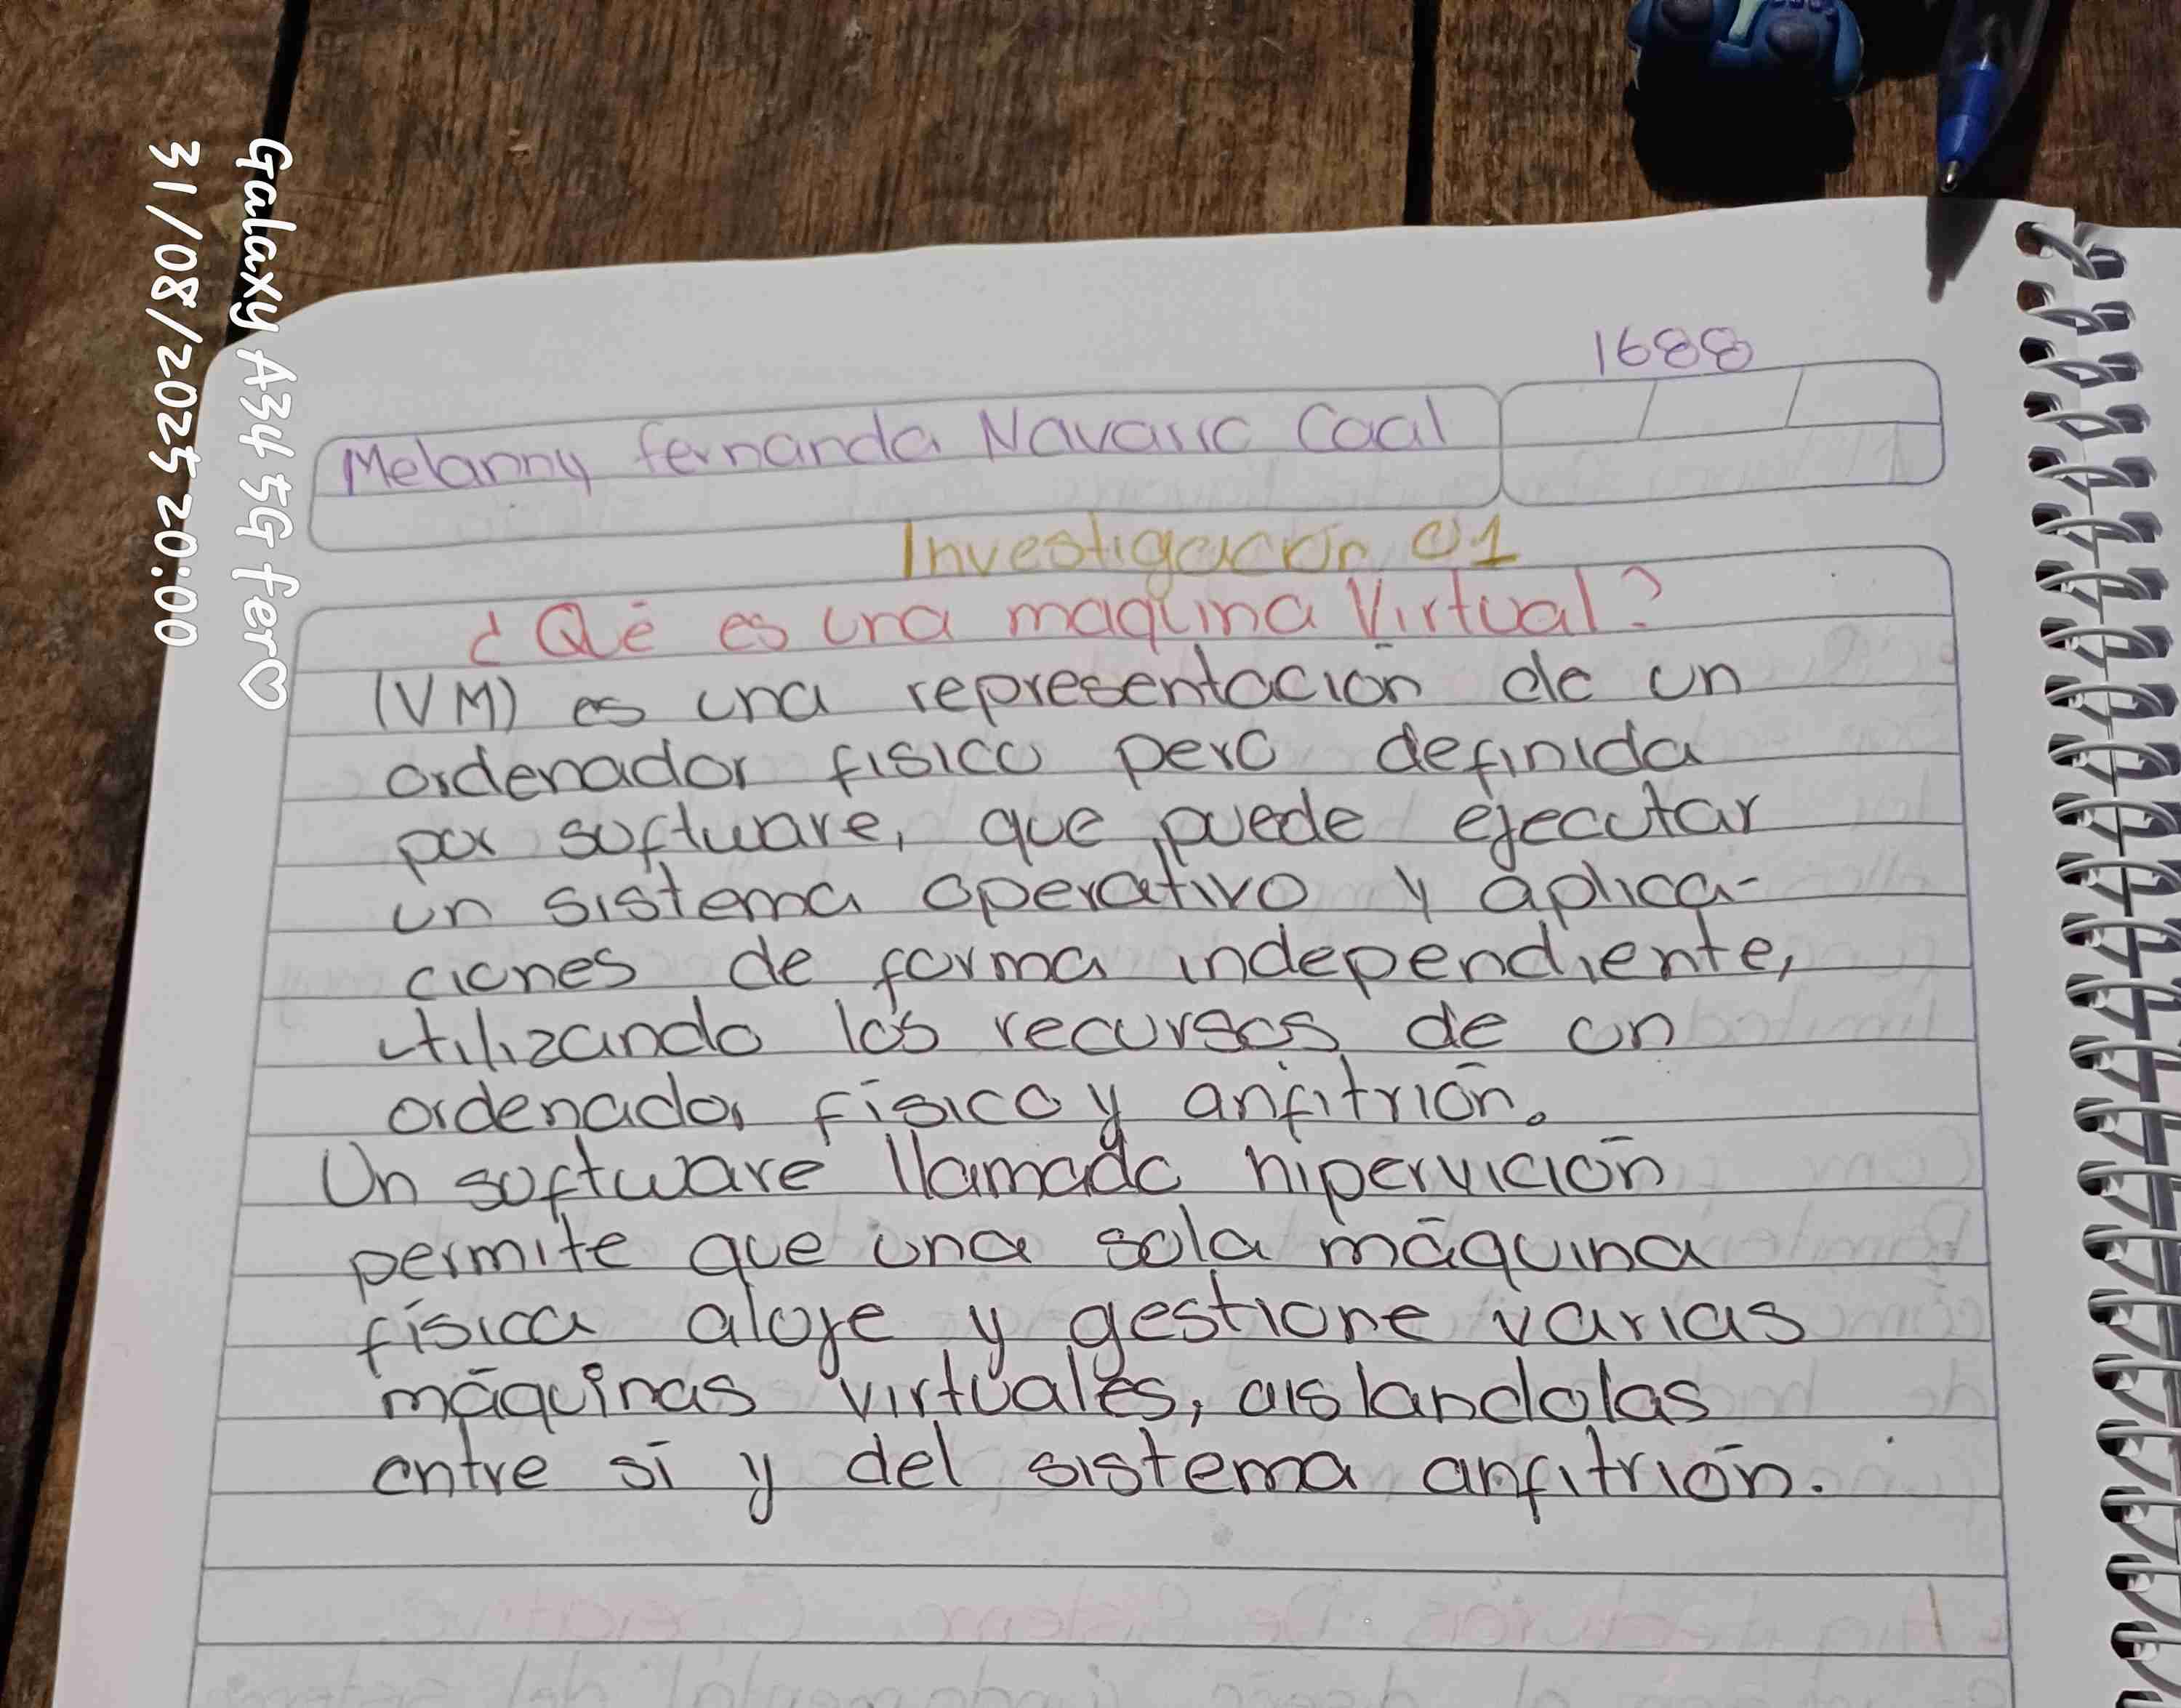 1688
Melanny Fernanda Navarro Caal
Investigación 01
¿Qué es una maquina Virtual?
(VM) es una representación de un
ordenador fisico pero definida
por software, que puede ejecutar
un sistema operativo y aplica-
ciones de forma independiente,
utilizando los recursos de un
ordenador físico y anfitrión.
Un software llamado hipervición
permite que una sola máquina
física aloje y gestione varias
máquinas virtuales, aislandolas
entre sí y del sistema anfitrión.
Galaxy A34 5G fer♡
31/08/2025 20:00